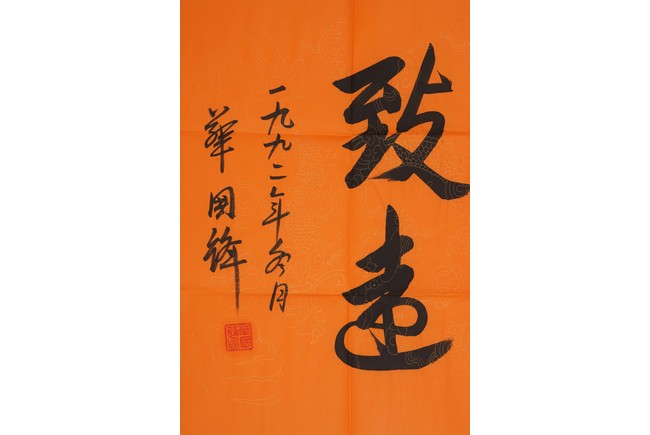 致远
一九九二年冬月
華國鋒